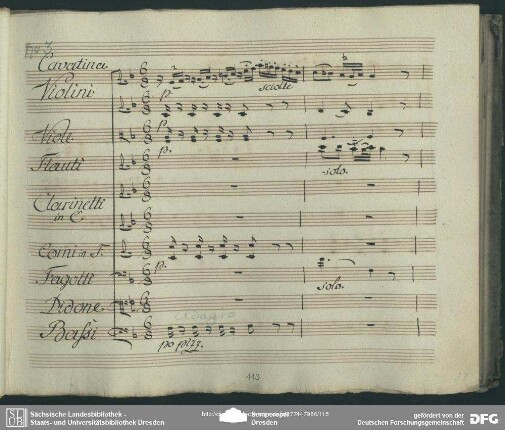 No 3
Cavatina
Violini
p.
sciolte
p.
Viole
p.
Flauti
solo.
Clarinetti
in C
Corni in F.
p.
Fagotti
solo.
Didone
adagio
Bassi
po pizz.
113
SLUB
Sächsische Landesbibliothek -
Staats- und Universitätsbibliothek Dresden
Semperoper
Dresden
gefördert von der
Deutschen Forschungsgemeinschaft
DFG